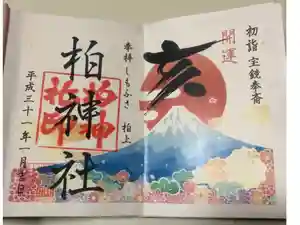 初詣 宝鏡奉斎
開運
亥
奉拝 しもふさ 柏上
柏神社
平成三十一年一月三日